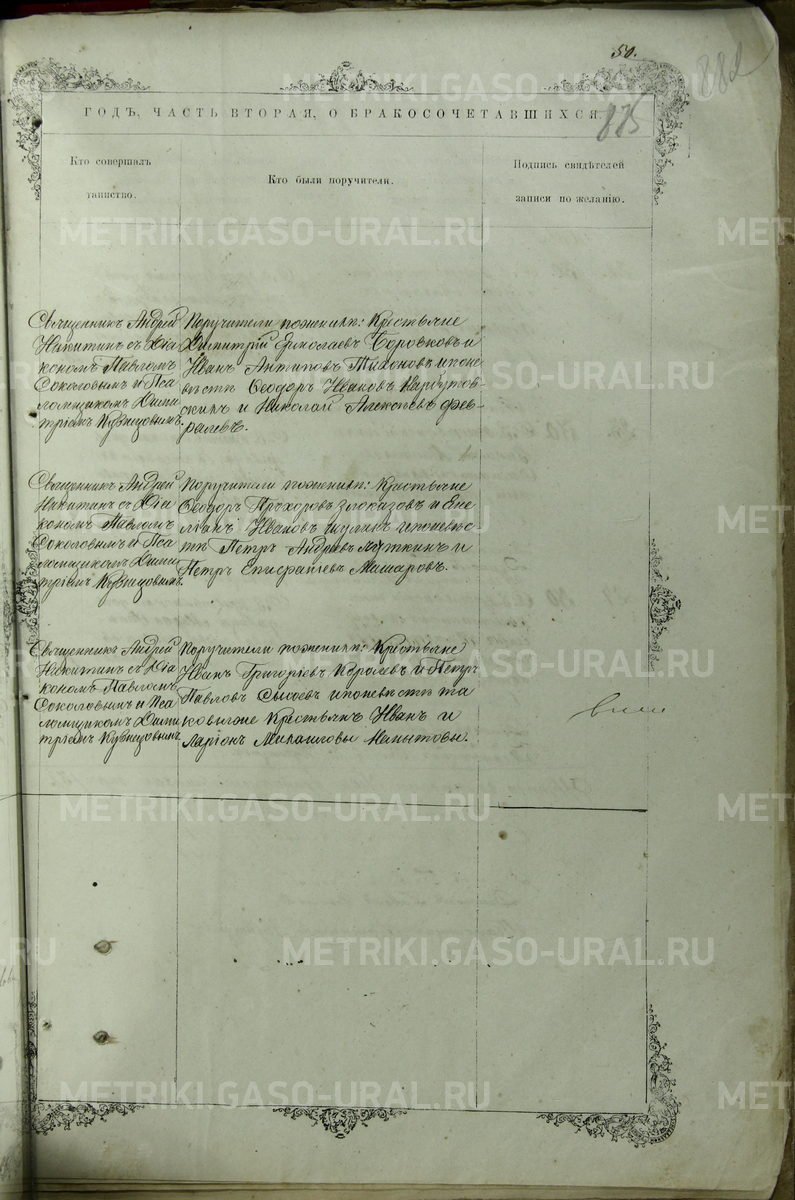 50.
882
875
ГОДЪ, ЧАСТЬ ВТОРАЯ, О БРАКОСОЧЕТАВШИХСЯ.
Кто совершалъ
таинство.
Кто были поручители.
Подпись свидѣтелей
записи по желанію.
Священникъ Андрей
Никитинъ съ Діа
кономъ Павломъ
Соколовымъ и Пса
ломщикомъ Дими
тріемъ Кузнецовымъ.
Поручители по женихѣ: Крестьяне
Димитрій Ермолаевъ Боровковъ и
Иванъ Антиповъ Тихоновъ и по не
вѣстѣ Ѳеодоръ Ивановъ
и Николай Алексѣевъ Фев
ралевъ.
Священникъ Андрей
Никитинъ съ Діа
кономъ Павломъ
Соколовымъ и Пса
ломщикомъ Дими
тріемъ Кузнецовымъ.
Поручители по женихѣ: Крестьяне
Ѳеодоръ Прохоровъ Злоказовъ и Еме
льянъ Ивановъ и по невѣс
тѣ Петръ Андреевъ и
Петръ Епифаніевъ Машаровъ.
Священникъ Андрей
Никитинъ съ Діа
кономъ Павломъ
Соколовымъ и Пса
ломщикомъ Дими
тріемъ Кузнецовымъ.
Поручители по женихѣ: Крестьяне
Иванъ Григоріевъ Королевъ и Петръ
Павловъ Сысоевъ и по невѣстѣ та
ковыеже Крестьяне Иванъ и
Ларіонъ Михаиловы
METRIKI.GASO-URAL.RU